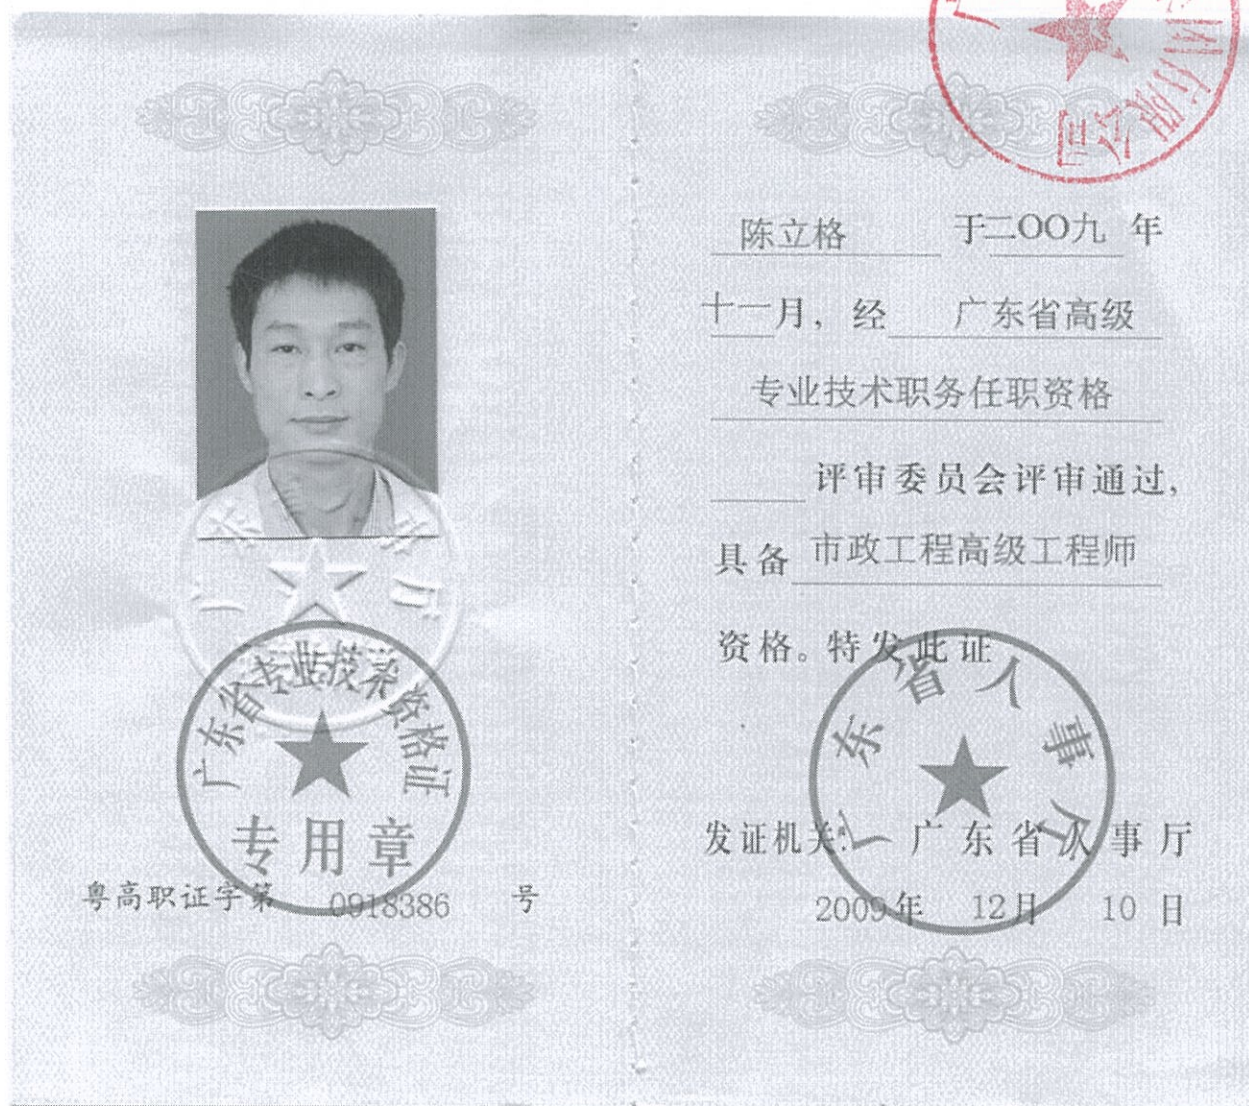 广东省专业技术资格证
专用章
粤高职证字第 0918386 号
有限公司
陈立格 于二〇〇九 年
十一月，经 广东省高级
专业技术职务任职资格
评审委员会评审通过，
具备 市政工程高级工程师
资格。特发此证
广东省人事厅
发证机关：广东省人事厅
2009年 12月 10日